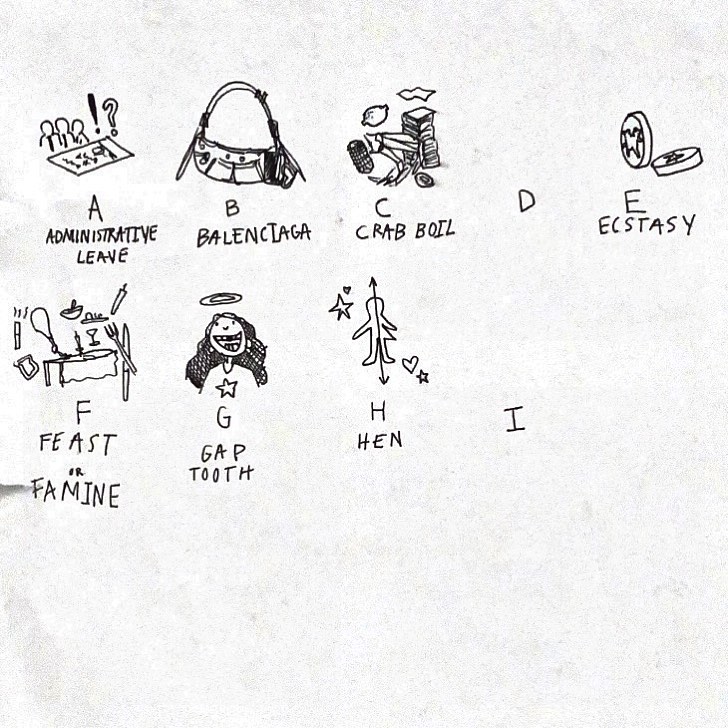 !?
A
ADMINISTRATIVE
LEAVE
B
BALENCIAGA
C
CRAB BOIL
D
E
ECSTASY
F
FEAST
OR
FAMINE
G
GAP
TOOTH
H
HEN
I